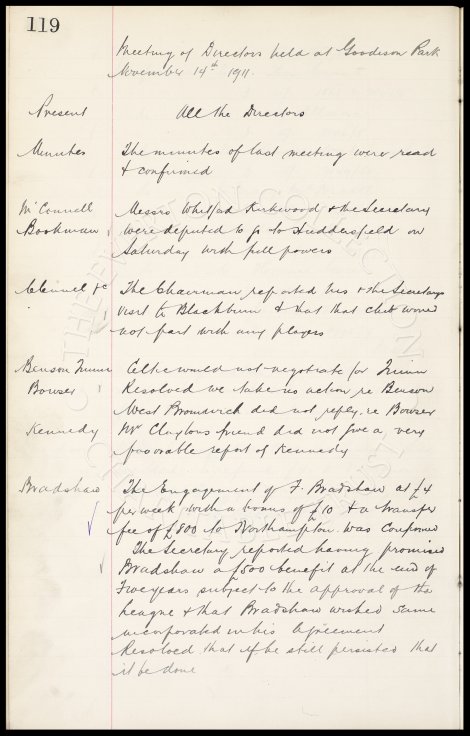 119
Meeting of Directors held at Goodison Park
November 14th 1911.
Present All the Directors
Minutes The minutes of last meeting were read
& confirmed
McConnell Messrs Whitford Kirkwood & the Secretary
Bookman were deputed to go to Huddersfield on
Saturday with full powers
Clennel &c The Chairman reported his & the Secretarys
visit to Blackburn & that that club would
not part with any players
Benson Quinn Celtic would not negotiate for Quinn
Bowser Resolved we take no action re Benson
West Bromwich did not reply re Bowser
Kennedy Mr Claytons friend did not give a very
favorable report of Kennedy
Bradshaw The Engagement of F. Bradshaw at £4
per week with a bonus of £10 & a transfer
fee of £800 to Northampton was confirmed
The Secretary reported having promised
Bradshaw a £500 benefit at the end of
years subject to the approval of the
League & that Bradshaw wished same
incorporated in his Agreement
Resolved that if he still persisted that
it be done
THE EVERTON COLLECTION